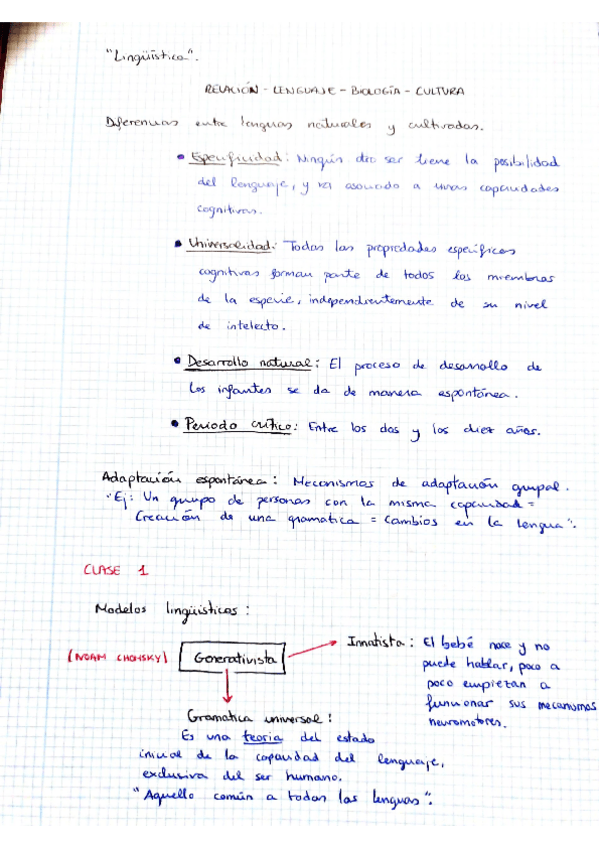 "Lingüística".
RELACIÓN - LENGUAJE - BIOLOGÍA - CULTURA
Diferencias entre lenguas naturales y cultivadas.
• Especificidad: Ningún otro ser tiene la posibilidad
del lenguaje, y va asociado a unas capacidades
cognitivas.
• Universalidad: Todas las propiedades específicas
cognitivas forman parte de todos los miembros
de la especie, independientemente de su nivel
de intelecto.
• Desarrollo natural: El proceso de desarrollo de
los infantes se da de manera espontánea.
• Periodo crítico: Entre los dos y los diez años.
Adaptación espontánea: Mecanismos de adaptación grupal.
"Ej: Un grupo de personas con la misma capacidad =
Creación de una gramatica = Cambios en la lengua".
CLASE 1
Modelos lingüísticos:
(NOAM CHOMSKY) Generativista
Innatista: El bebé nace y no
puede hablar, poco a
poco empiezan a
funcionar sus mecanismos
neuromotores.
Gramatica universal:
Es una teoria del estado
inicial de la capacidad del lenguaje,
exclusiva del ser humano.
"Aquello común a todas las lenguas".